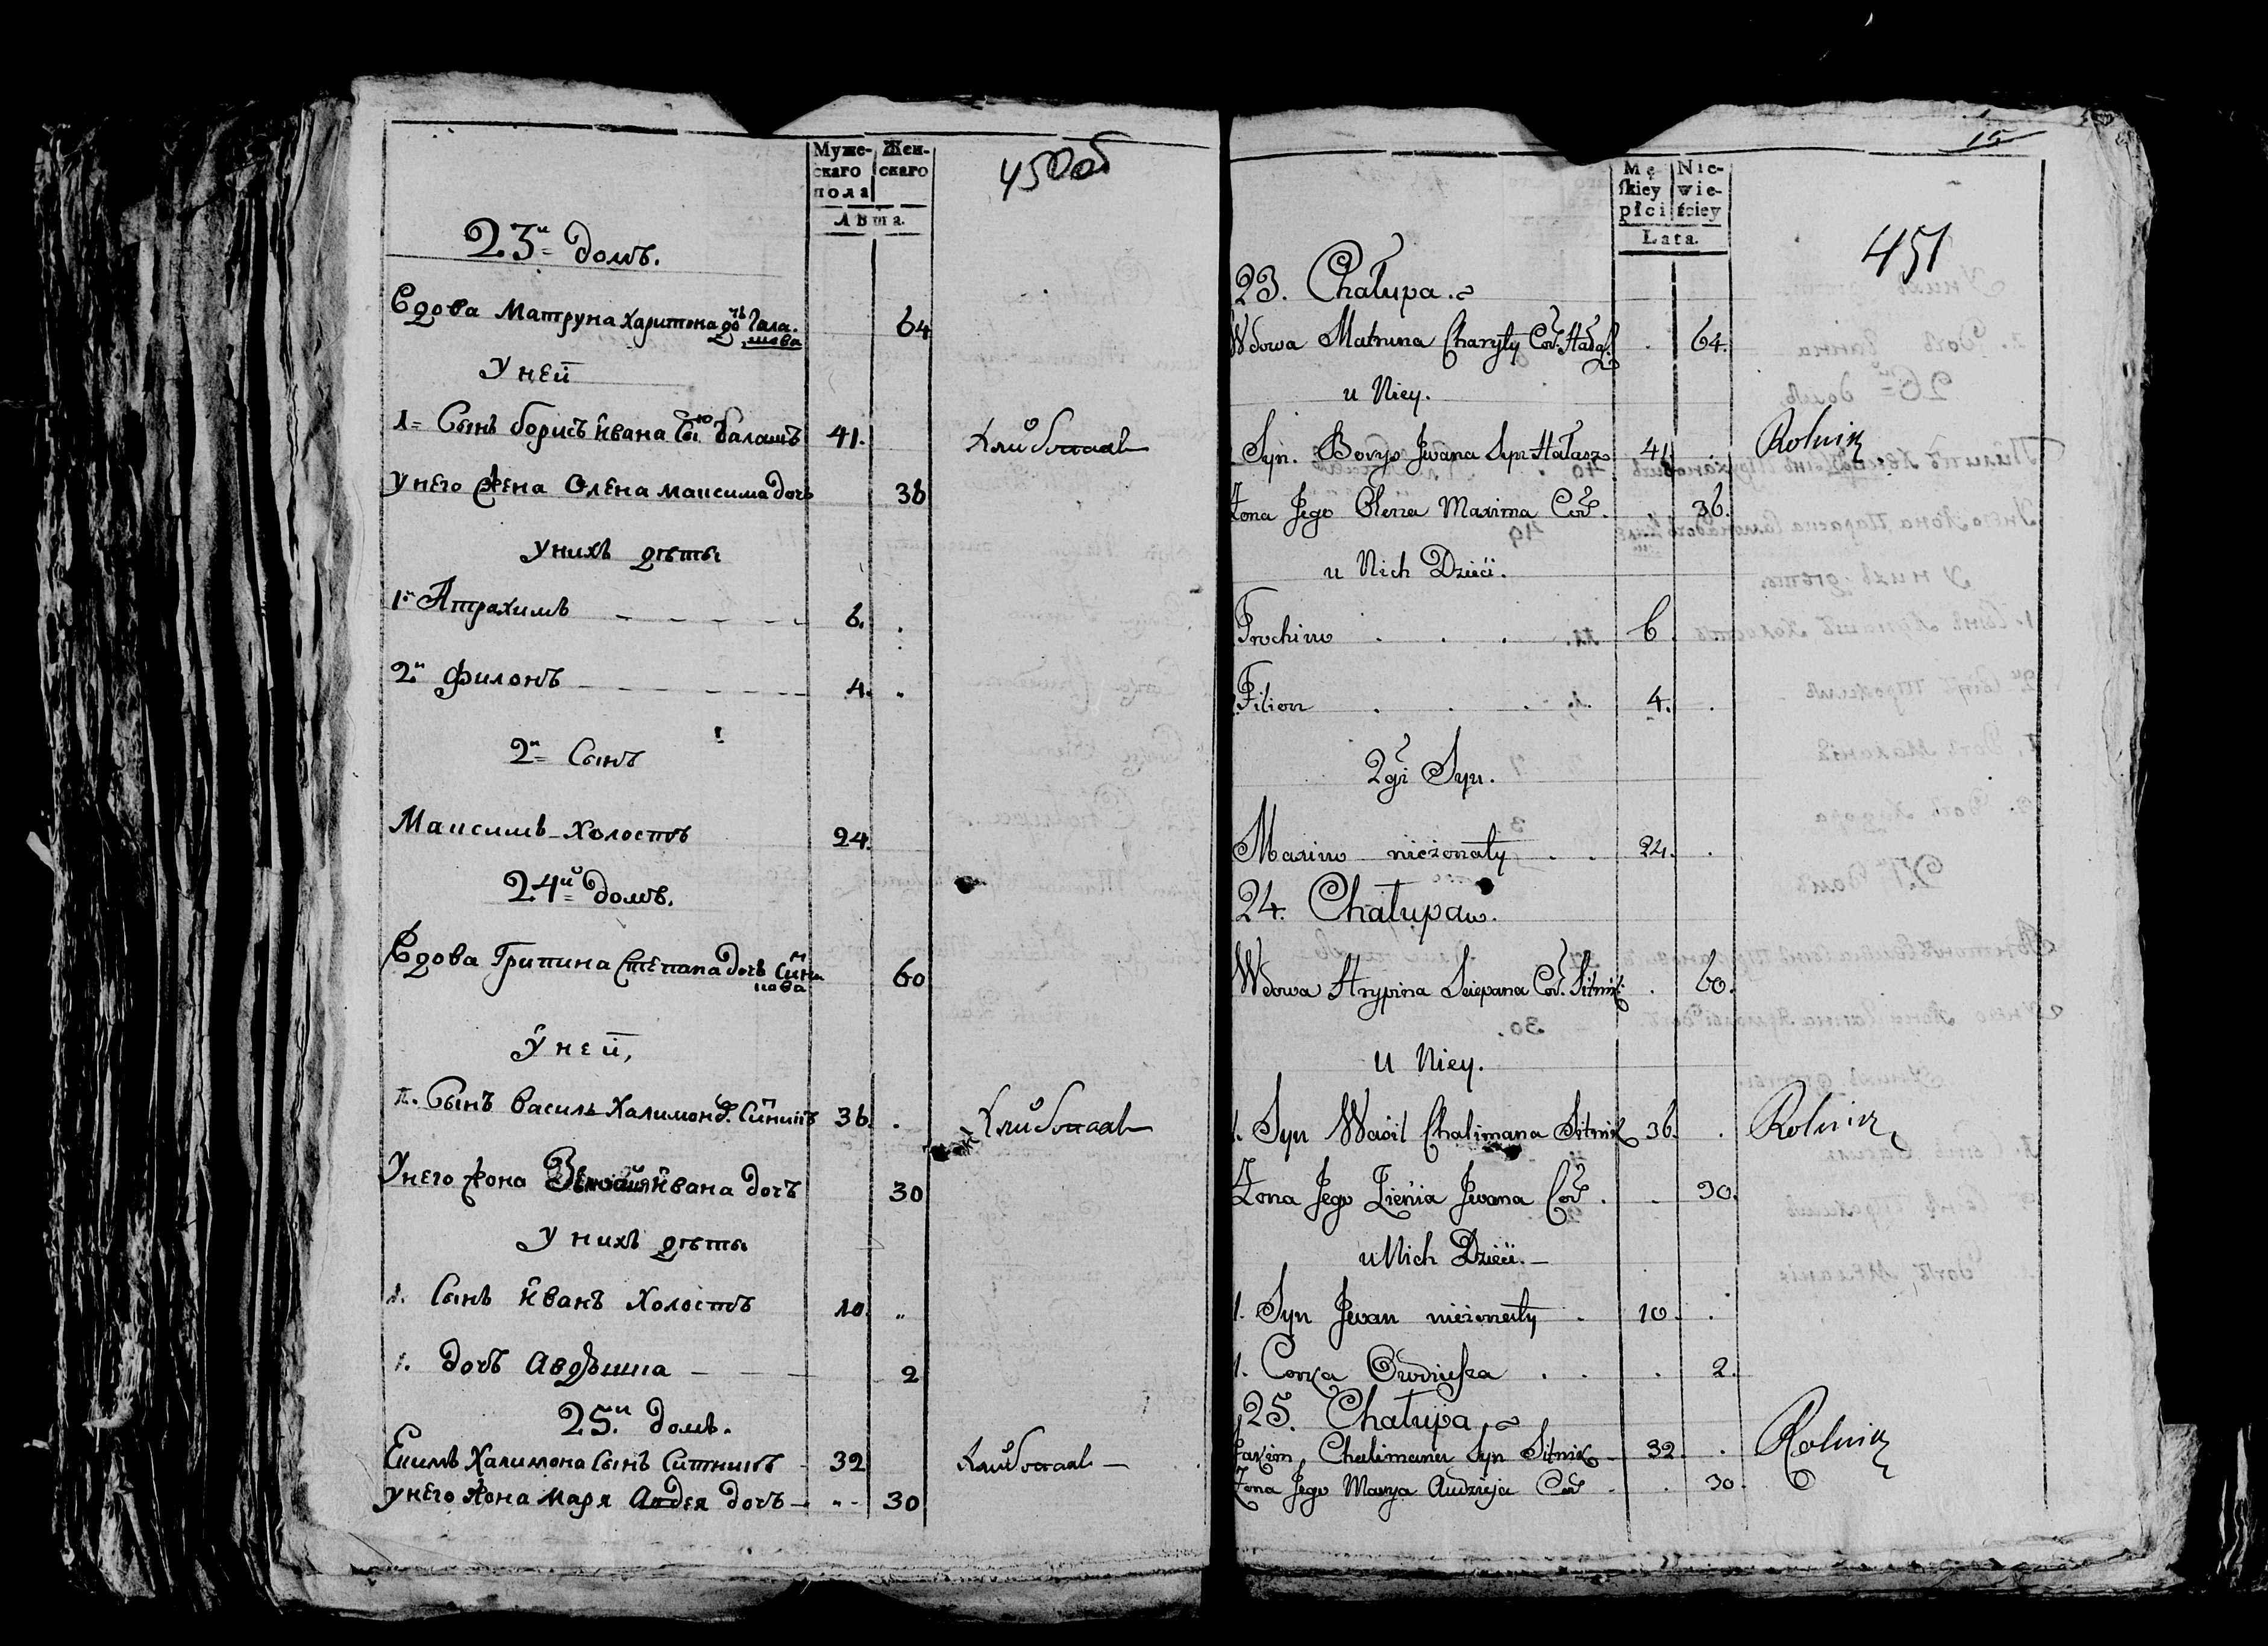 Муже-
скаго
пола
Жен-
скаго
450об
Лѣта.
23й домъ.
Вдова Матруна Харитона дочь Гала-
шова
64
У ней
1= Сынъ Борисъ Ивана Сы. Галашъ 41.
Хлибопашъ
У него жена Олена Максима дочь 36
У нихъ дѣти
1й Атрахимъ 6.
2й Филонъ 4.
2й Сынъ
Максимъ Холостъ 24.
24й домъ.
Вдова Грипина Степана дочь Ситни
кова
60
У ней,
1. Сынъ Василь Халимона С. Ситникъ 36.
Хлибопашъ
У него жона Ивана дочъ 30
У нихъ дѣти
1. Сынъ Иванъ Холостъ 10.
1. дочъ Авдюшка 2
25й домъ.
Екимъ Халимона Сынъ Ситникъ 32
Хлибопашъ
У него жона Маря Авдея дочъ 30
15
Mę-
skiey
płci
Nie-
wie-
ściey
Lata.
451
23. Chałupa.
Wdowa Matruna Charyty Cor. Hałasz. 64.
u Niey.
Syn. Borys Jwana Syn Hałasz 41.
Rolnik
Żona Jego Olena Maxima Cor. 36.
u Nich Dzieci.
Trochim 6
Filion 4.
2gi Syn.
Maxim nieżonaty 24.
24. Chałupa.
Wdowa Hrypina Sciepana Cor. Sitnik. 60.
u Niey.
1. Syn Wasil Chalimana Sitnik 36.
Rolnik
Żona Jego Zienia Jwana Cor. 30.
u Nich Dzieci.
1. Syn Jwan nieżonaty 10.
1. Corka Owdziuszka 2.
25. Chałupa
Jakim Chalimana Syn Sitnik 32.
Rolnik
Żona Jego Marya Audzieja Cor 30.